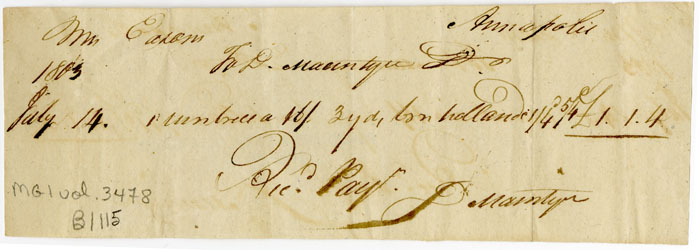 Mrs Easons Annapolis
1803 To D. Macintyre Dr
July 14. 1 umbrella 16/ yds brn holland 1/4d 5/4d £1.1.4
Rec.d Pay.t
D Macintyre
MG1 vol. 3478
B1115